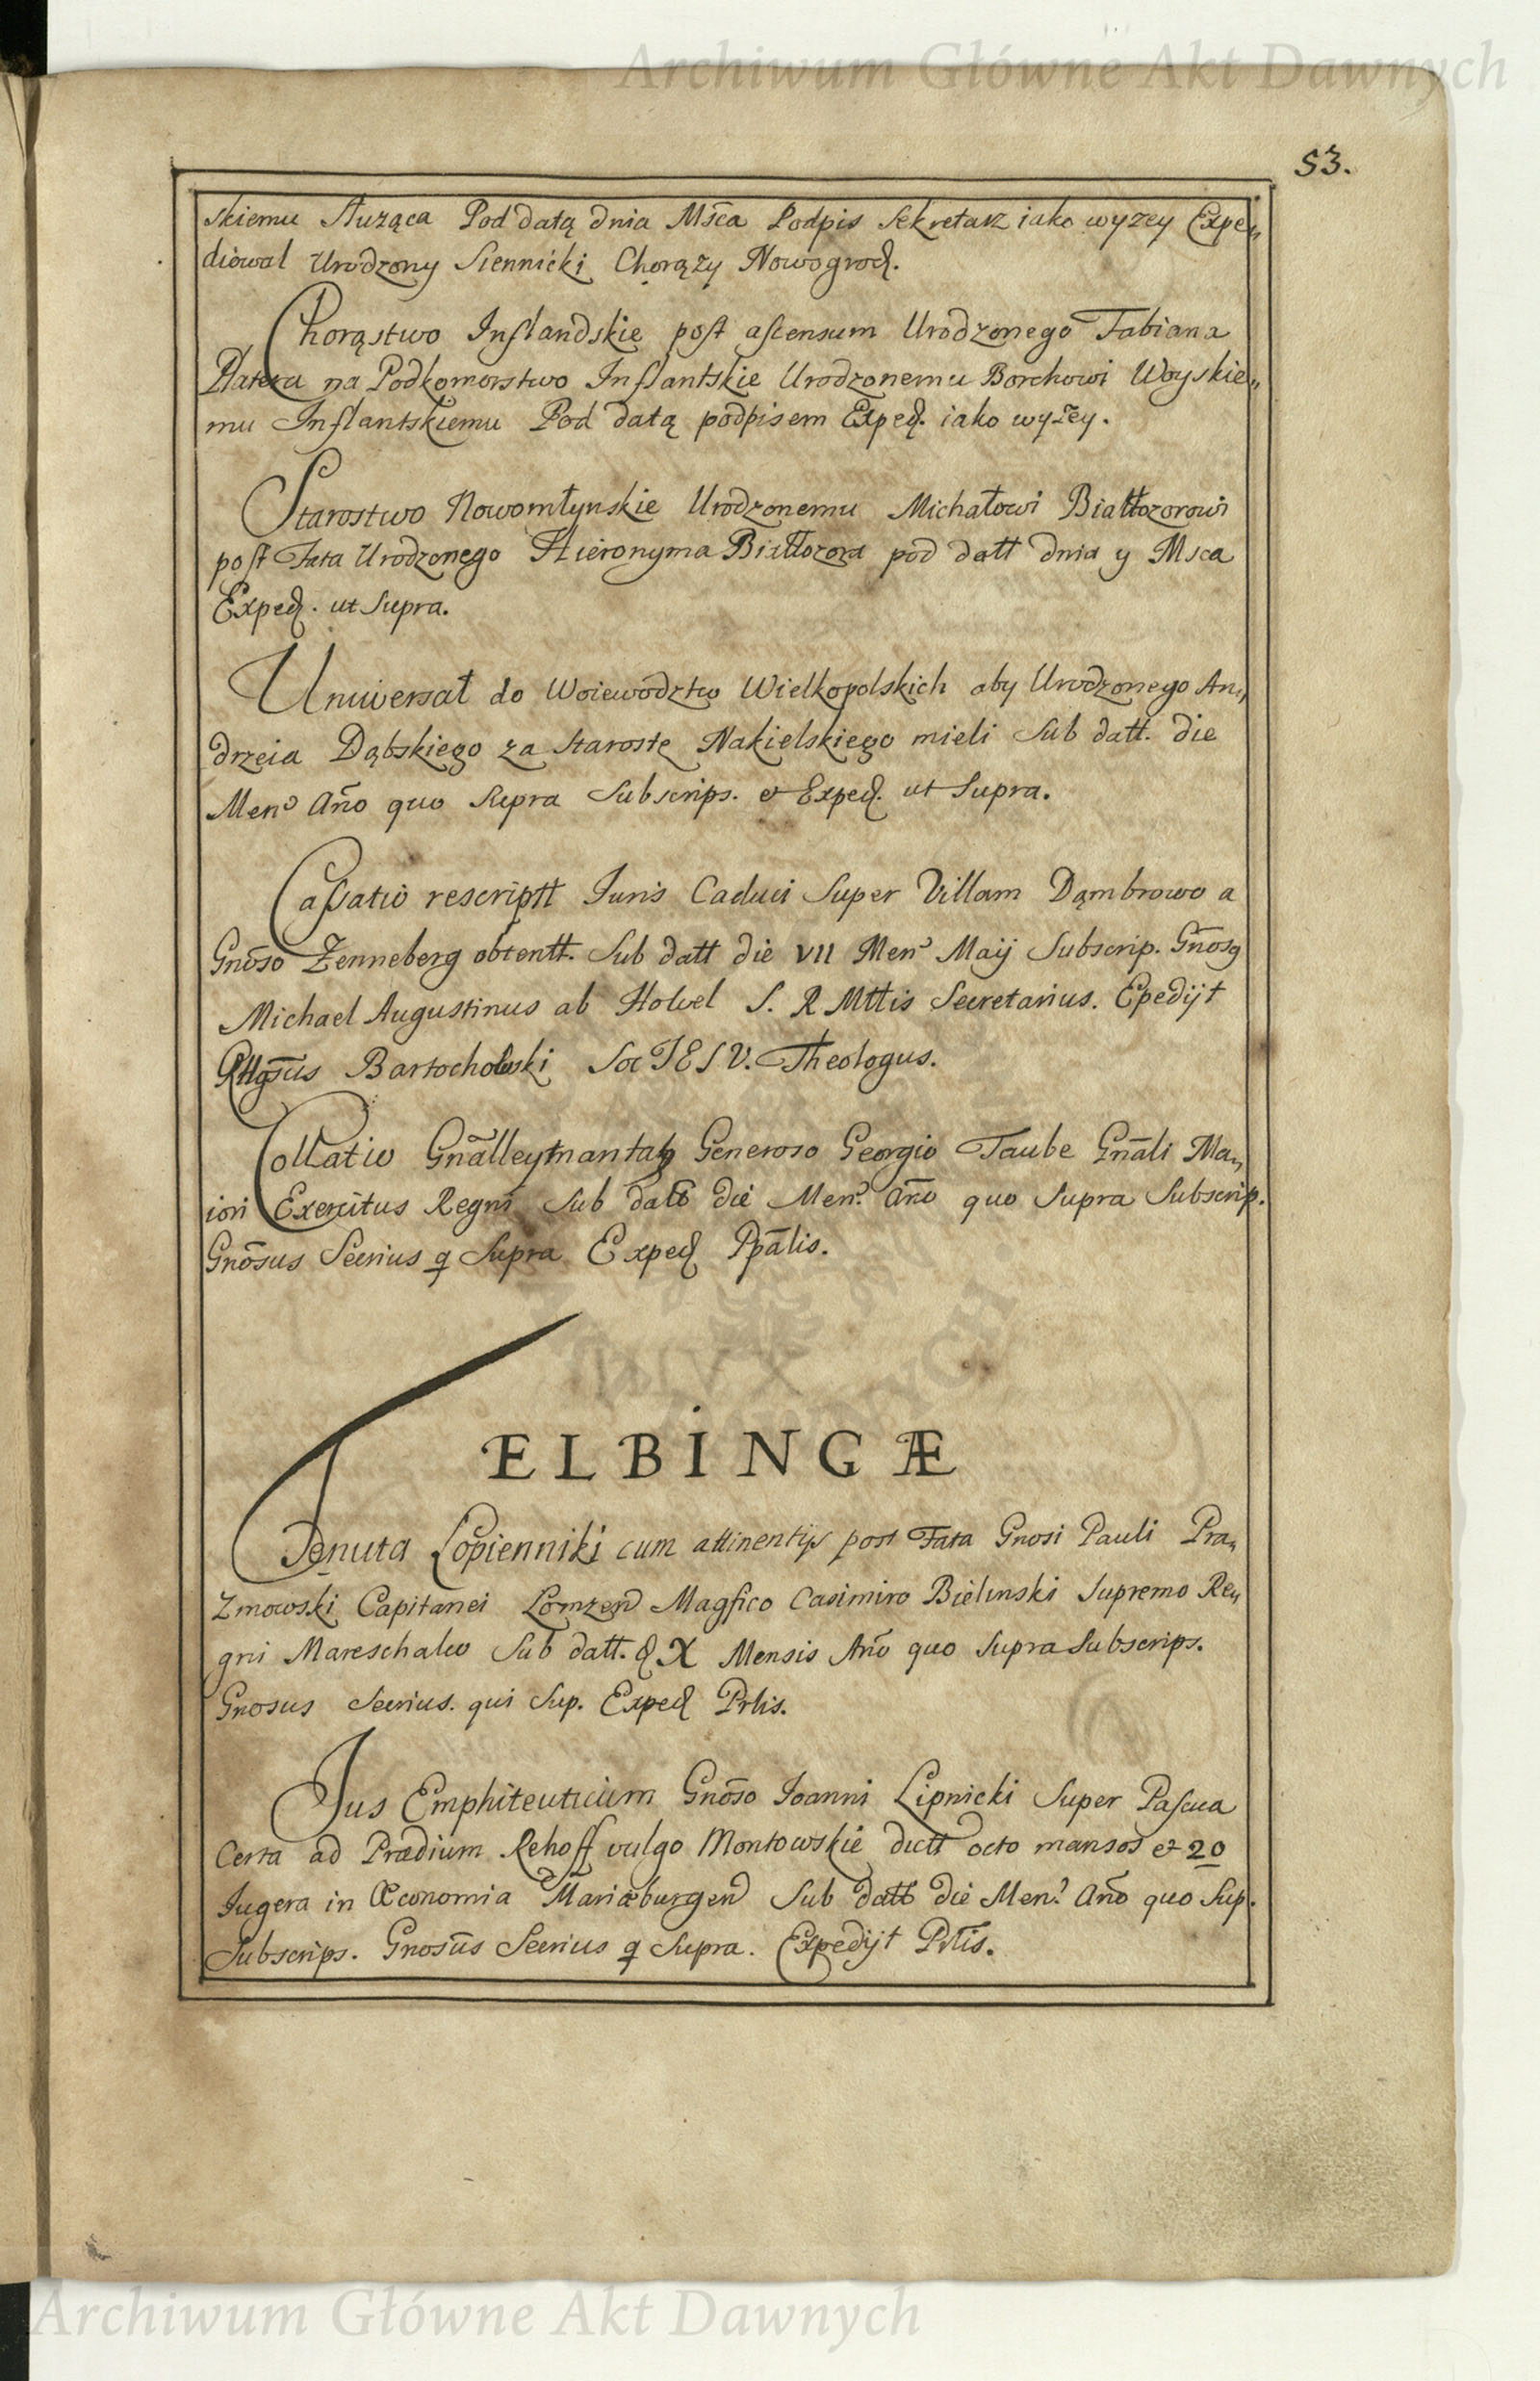 Archiwum Główne Akt Dawnych
53.
skiemu służąca Pod datą dnia Msca Podpis Sekretarz iako wyzey Expe„
diował Urodzony Siennicki Chorązy Nowogrod.
Chorąstwo Inflandskie post ascensum Urodzonego Fabiana
Platera na Podkomorstwo Inflantskie Urodzonemu Borchowi Woyskie„
mu Inflantskiemu Pod datą podpisem Exped. iako wyżey.
Starostwo Nowomłynskie Urodzonemu Michałowi Białłozorowi
post Fata Urodzonego Hieronyma Białłozora pod datt dnia y Msca
Exped. ut Supra.
Uniwersał do Woiewodztw Wielkopolskich aby Urodzonego An„
drzeia Dąbskiego za Starostę Nakielskiego mieli Sub datt. die
Men. Ano quo Supra Subscrips. et Exped. ut Supra.
Cassatio rescriptt Juris Caduci Super Villam Dąmbrowo a
Gnoso Zenneberg obtentt. Sub datt die VII Men Maij Subscrip. Gnosg
Michael Augustinus ab Holvel S. R Mttis Secretarius. Epedijt
Rllgsus Bartocholwski Soc JESV. Theologus.
Collatio Gnalleytnantatg Generoso Georgio Taube Gnali Ma„
iori Exercitus Regni Sub datt die Men. Ano quo Supra Subscrip.
Gnosus Secrius q Supra Exped Ppalis.
ELBINGÆ
Tenuta Łopienniki cum attinentijs post Fata Gnosi Pauli Pra„
zmowski Capitanei Łomzen Magfico Casimiro Bielinski Supremo Re„
gni Mareschalco Sub datt. d X Mensis Ano quo Supra Subscrips.
Gnosus Secrius. qui Sup. Exped Prlis.
Jus Emphiteuticum Gnoso Joanni Lipnicki Super Pascua
Certa ad Prædium Rehoff vulgo Montowskie dictt octo mansos et 20
Jugera in Œconomia Mariæburgen Sub datt die Men. Ano quo Sup.
Subscrips. Gnosus Secrius q Supra. Expedijt Prlis.
Archiwum Główne Akt Dawnych